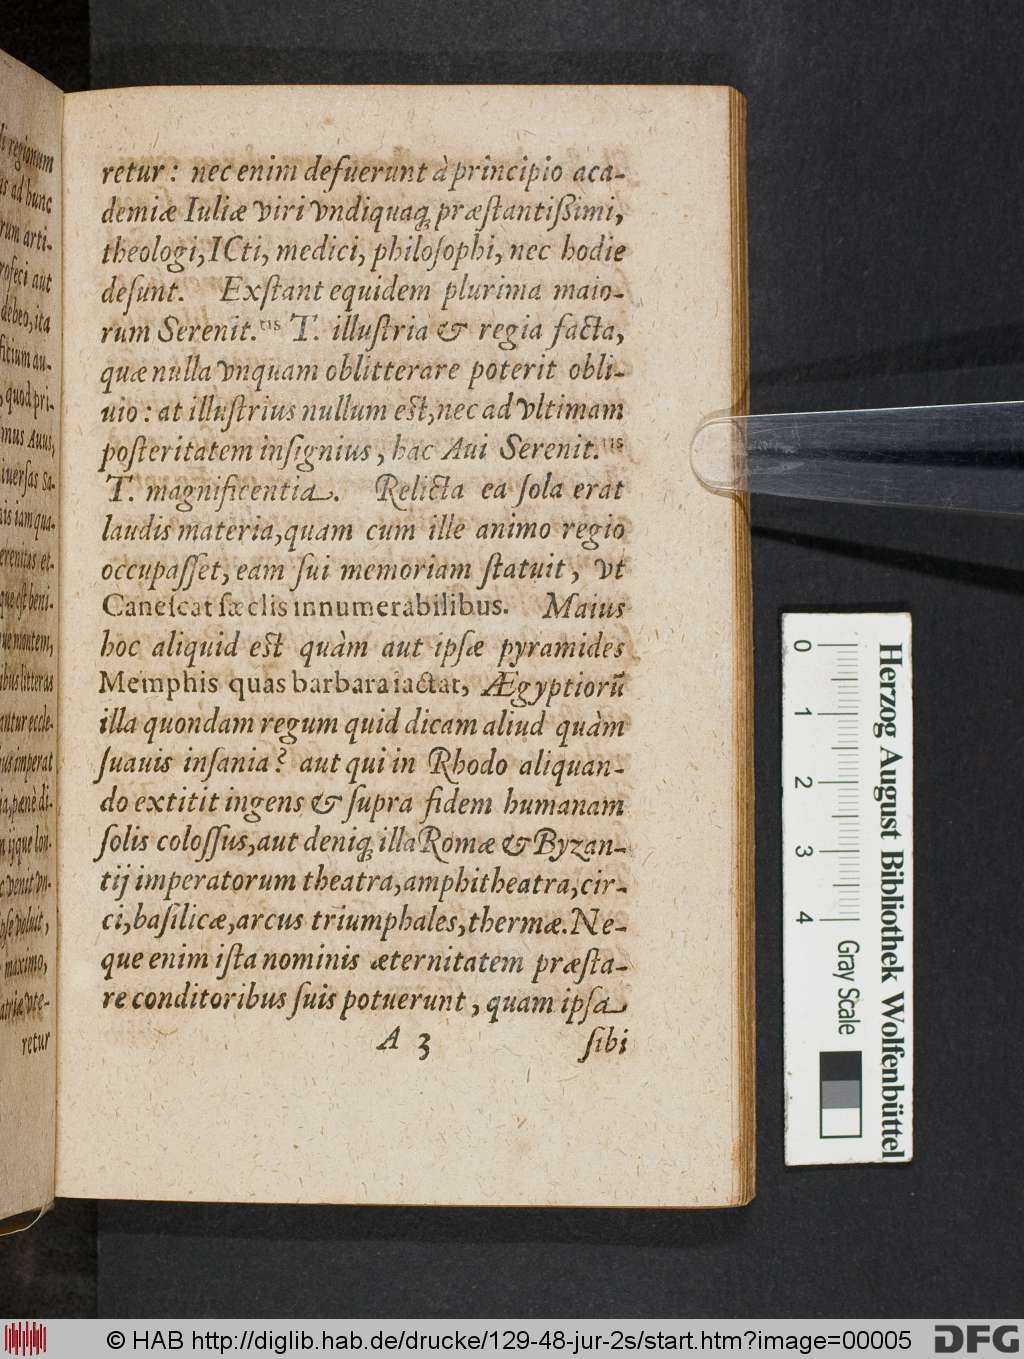 di regionum
ad hunc
rum arti-
aut
debeo, ita
ficium au-
quod pri-
mus Auus,
uersas sa-
iam qua-
erenitas et-
que est beni-
ue montem,
ibus litteras
antur eccle-
us imperat
pænè di-
ijque lon-
venit vn-
pse voluit,
maximo,
atria vte-
retur
retur : nec enim defuerunt à principio aca-
demiæ Iuliæ viri vndiquaq; præstantißimi,
theologi, ICti, medici, philosophi, nec hodie
desunt. Exstant equidem plurima maio-
rum Serenit.tis T. illustria & regia facta,
quæ nulla vnquam oblitterare poterit obli-
uio : at illustrius nullum est, nec ad vltimam
posteritatem insignius, hac Aui Serenit.tis
T. magnificentia. Relicta ea sola erat
laudis materia, quam cum ille animo regio
occupasset, eam sui memoriam statuit, vt
Canescat sæclis innumerabilibus. Maius
hoc aliquid est quàm aut ipsæ pyramides
Memphis quas barbara iactat, Ægyptiorũ
illa quondam regum quid dicam aliud quàm
suauis insania? aut qui in Rhodo aliquan-
do extitit ingens & supra fidem humanam
solis colossus, aut deniq; illa Romæ & Byzan-
tij imperatorum theatra, amphitheatra, cir-
ci, basilicæ, arcus triumphales, thermæ. Ne-
que enim ista nominis æternitatem præsta-
re conditoribus suis potuerunt, quam ipsa
A 3 sibi
0 1 2 3 4
Gray Scale
Herzog August Bibliothek Wolfenbüttel
© HAB http://diglib.hab.de/drucke/129-48-jur-2s/start.htm?image=00005
DFG